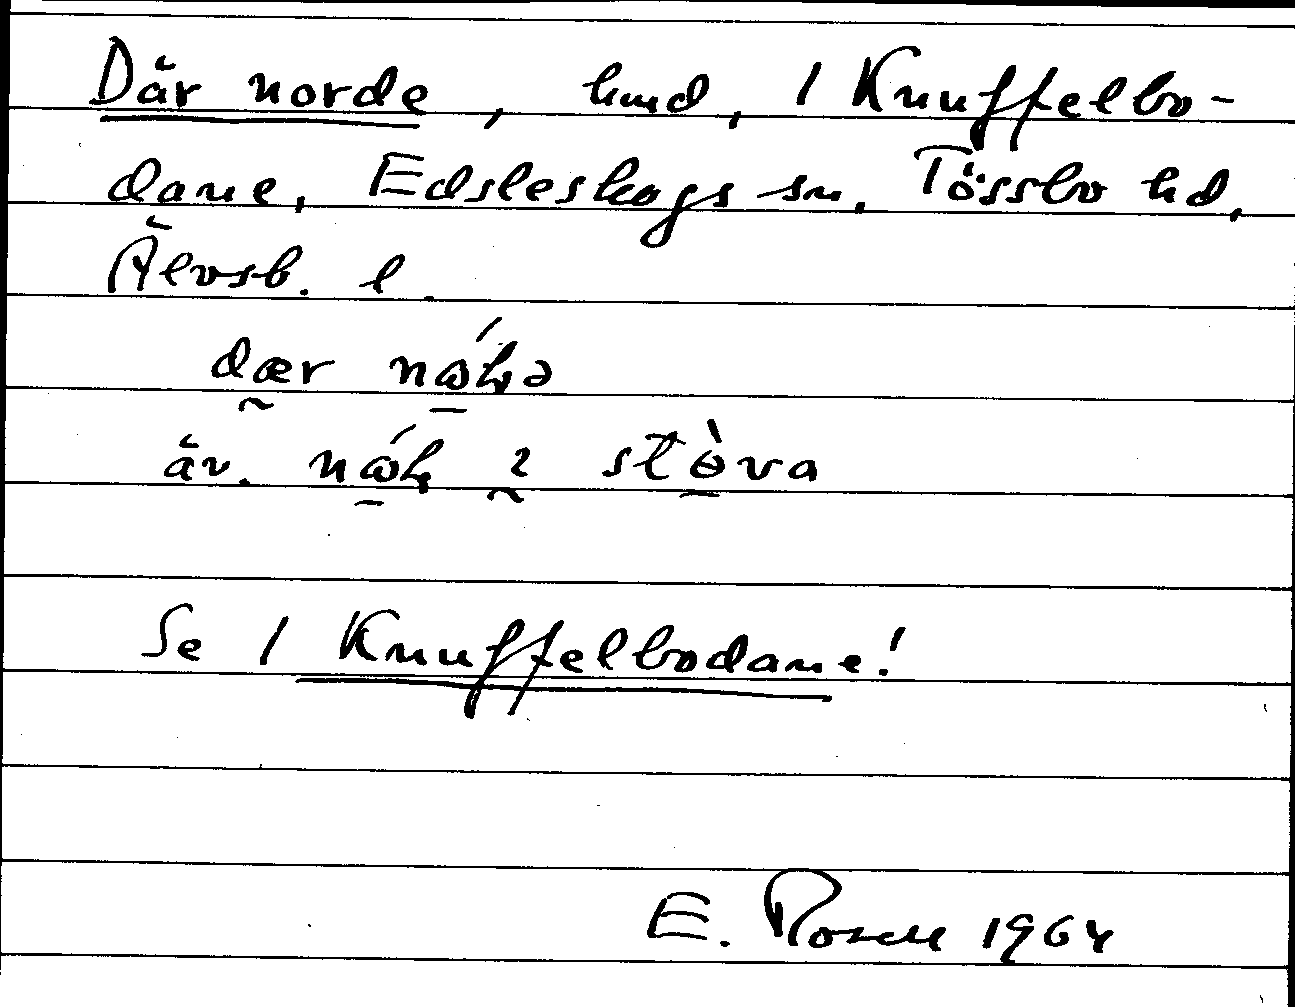 Där norde, hmd, 1 Knuffelbo-
dane, Edsleskogs sn, Tössbo hd,
Älvsb. l.
dær
äv. stɵ̀va
Se 1 Knuffelbodane!
E. Rosell 1964